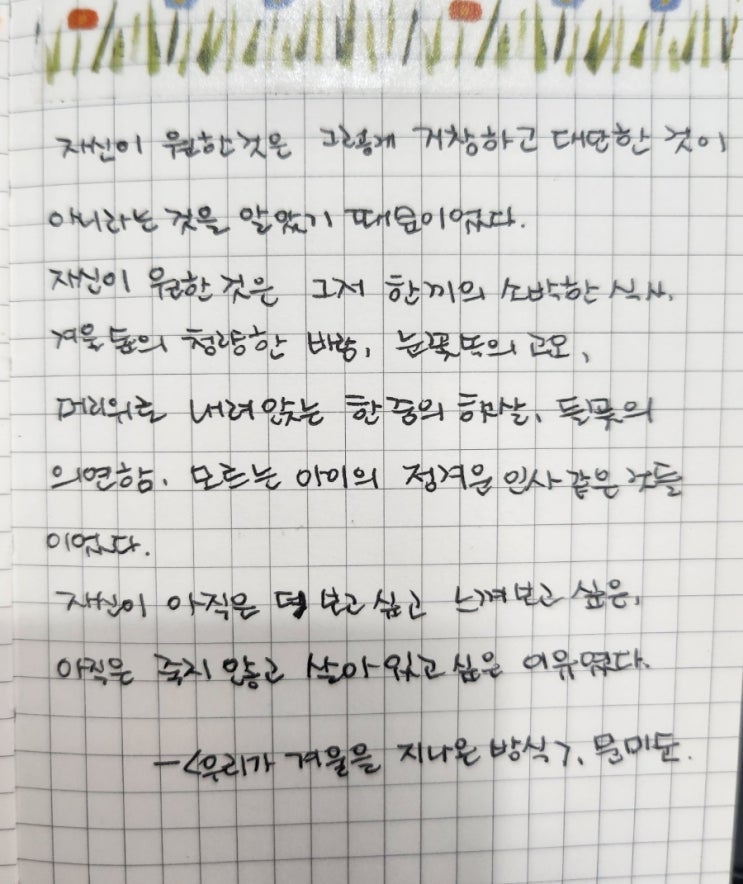 자신이 원한 것은 그렇게 거창하고 대단한 것이
아니라는 것을 알았기 때문이었다.
자신이 원한 것은 그저 한끼의 소박한 식사,
겨울 틈의 청량한 바람, 눈꽃뜩의 고요,
머리위로 내려 앉는 한 줌의 햇살, 들풀의
의연함, 모르는 아이의 정겨운 인사 같은 것들
이었다.
자신이 아직은 더 보고 싶고 느껴보고 싶은,
아직은 죽지 않고 살아 있고 싶은 이유였다.
-<우리가 겨울을 지나온 방식>, 문미순.